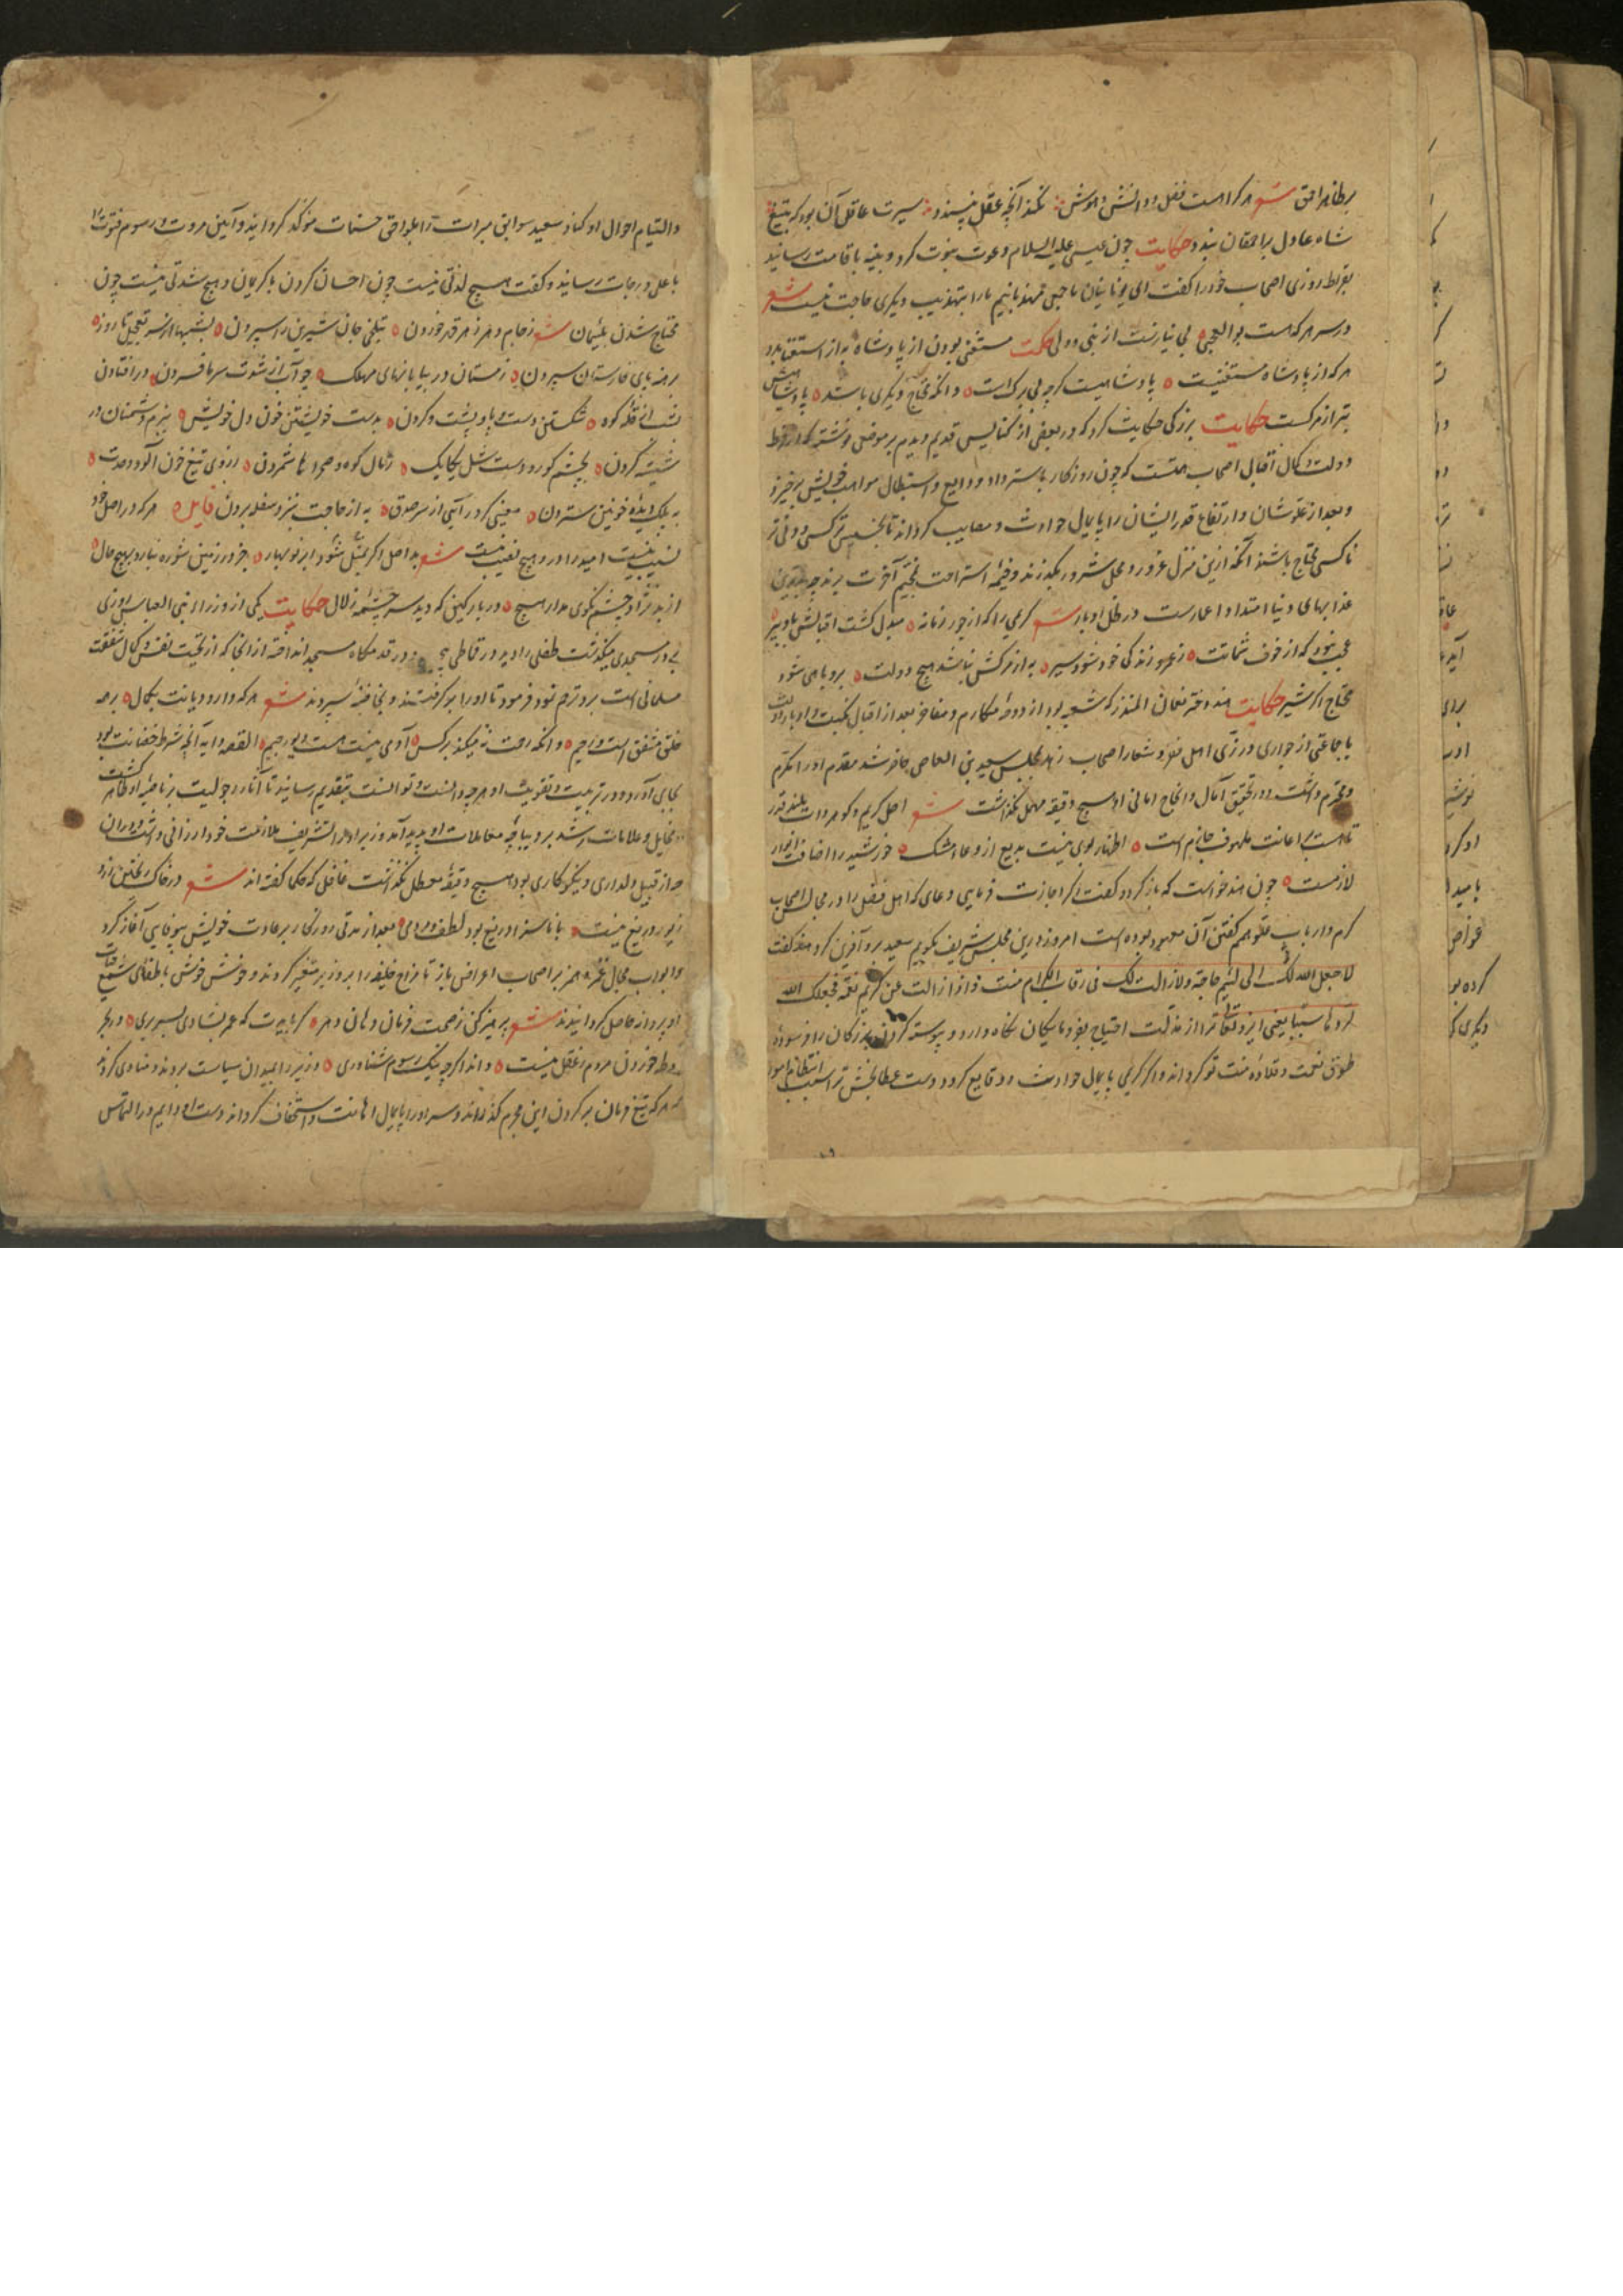 بر ظاهر احمق شعر هر کرا هست فضل و دانش و هوش نکند آنچه عقل نپسندد سیرت عاقل آن بود که بتیغ
شاه عادل بر احمقان بندد حکایت چون عیسی علیه السلام دعوت نبوت کرد و بینه باقامت رسانید
بقراط روزی اصحاب خود را کفت ای یونانیان ما جمعی مهذبانیم ما را بتهذیب دیکری حاجت نیست شعر
در سر هر که هست بوالعجبی بی نیازست از نبی و ولی حکمت مستغنی بودن از پادشاه به از استغنا بدو
هر که از پادشاه مستغنیست پادشاهیست کرچه بی برک است وانکه محتاج دیکری باشد پادشاهیش
بتر از مرکست حکایت بزرکی حکایت کرد که در بعضی از کنایس قدیم دیدم بر موضعی نوشته که از فرط
دولت و کمال اقبال اصحاب همتست که چون روزکار باسترداد ودایع و استبطال مواهب خویش برخیزد
و بعد از علو شان و ارتفاع قدر ایشان را پایمال حوادث و مصایب کرداند تا بخسیس ترکس و دنی تر
ناکسی محتاج باشند آنکه ازین منزل غرور و محل شرور بکذرند و خیمه استراحت بمخیم آخرت برند چه بدترین
عذابهای دنیا امتداد اعمارست در ظل ادبار شعر کریمی را که از جور زمانه مبدل کشت اقبالش بادبیر
عجب نبود که از خوف شماتت ز عمر و زندکی خود شود سیر به از مرکش نباشد هیچ دولت برو باهی شود
محتاج اکر شیر حکایت هند دختر نعمان المنذر که شعبه بود از دوحه مکارم و مفاخر بعد از اقبال نکبت و ادبار دولت
با جماعتی از جواری در زی اهل فقر و شعار اصحاب زهد بمجلس سعید بن العاص حاضر شد مقدم او را مکرم
و محترم داشت و در تحقیق آمال و انجاح امانی او هیچ دقیقه مهمل نکذاشت شعر اصل کریم و کوهر ذات بلند قدر
تا هست بر اعانت ملهوف جازم است اظهار بوی نیست بدیع از وعاء مشک خورشید را اضافت انوار
لازمست چون هند خواست که باز کردد کفت اکر اجازت فرمایی دعای که اهل فضل را در مجالس اصحاب
کرم و ارباب علو همم کفتن آن معهود بوده است امروز درین مجلس شریف بکویم سعید برو آفرین کرد هند کفت
لا جعل الله لک الی لئیم حاجة ولا زالت لک فی رقاب الکرام منت و اذا ازالت عن کریم نعمة فجعلک الله
لردها سببا یعنی ایزد تعالی ترا از مذلت احتیاج بفرومایکان نکاه دارد و پیوسته کردن بزرکان را فرسوده
طوق نعمت و قلاده منت تو کرداند و اکر کریمی پایمال حوادث و وقایع کردد دست عطابخش ترا سبب انتظام امور
والتیام احوال او کناد سعید سوابق مبرات را بلواحق حسنات موکد کردانید و آیین مروت و رسوم فتوت را
باعلی درجات رسانید و کفت هیچ لذتی نیست چون احسان کردن با کریمان و هیچ شدتی نیست چون
محتاج شدن بلئیمان شعر ز جام دهر زهر قهر خوردن بتلخی جان شیرین را سپردن بشبها از سر تعجیل تا روز
برهنه پای خارستان سپردن زمستان در بیابانهای مهلک چو آب از شوت سرما فسردن در افتادن
شب از قله کوه شکستن دست و پا و پشت و کردن بدست خویشتن خون دل خویش ببزم دشمنان در
شیشه کردن بچشم کور و دست شل یکایک رمال کوه و صحراها شمردن ز روی تیغ خون آلود و حدت
به پلک دیده خونین ستردن معینی کر درآیی از سر صدق به از حاجت بنزد سفله بردن قایل هر که در اصل خود
نسیب نیست امید را در و هیچ نصیب نیست شعر بد اصل اکر بمثل شود ابر نوبهار بر خود زمین شوره نبارد بهیچ حال
از بدنژاد چشم نکوی مدار هیچ در بارکین که دید سرچشمه زلال حکایت یکی از وزراء بنی العباس روزی
بدر مسجدی میکذشت طفلی را دید در قماطی در قدمکاه مسجد انداخته از انجا که از نجابت نفس و کمال شفقت
مسلمانی است برو ترحم نمود فرمود تا او را برکرفتند و بخانه سپردند شعر هر که دارد دیانت بکمال بر همه
خلق مشفق است و رحیم وانکه رحمت نمیکند بر کس آدمی نیست هست دیو رجیم القصه دایه آنچه شرط حضانت بود
بجای آورد و در تربیت و تقویت او هرچه دانست و توانست بتقدیم رسانید تا آثار رجولیت بر ناصیه او ظاهر کشت
و مخایل و علامات رشد بر دیباچه معاملات او پدید آمد وزیر او را تشریف ملازمت خود ارزانی داشت و در ان
چه از قبیل دلداری و نیکوکاری بود هیچ دقیقه معطل نکذاشت غافل که حکما کفته اند شعر در خاک ریختن زر و
زیور دریغ نیست با ناسزا دریغ بود لطف و مردمی بعد از مدتی روزکار بر عادت خویش بیوفایی آغاز کرد
و ابواب مجال غمز و همز بر اصحاب اعراض باز تا مزاج خلیفه را بر وزیر متغیر کردند و خونش خوشی باطفای شمع حیات
او پروانه حاصل کردانیدند شعر پرهیز کن ز صحبت فرمان دهان دهر کر بایدت که عمر بشادی بسر بری در بحر
غوطه خوردن مردم ز عقل نیست داند اکرچه نیک رسوم شناوری وزیر را بمیدان سیاست بردند و منادی کردند
که هر که تیغ فرمان بر کردن این مجرم کذراند و سر او را پایمال اهانت و استخفاف کرداند دست او دایم در التماس